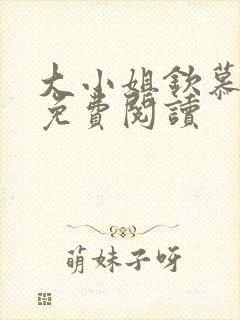 大小姐欽慕
免費閱讀
萌妹子呀